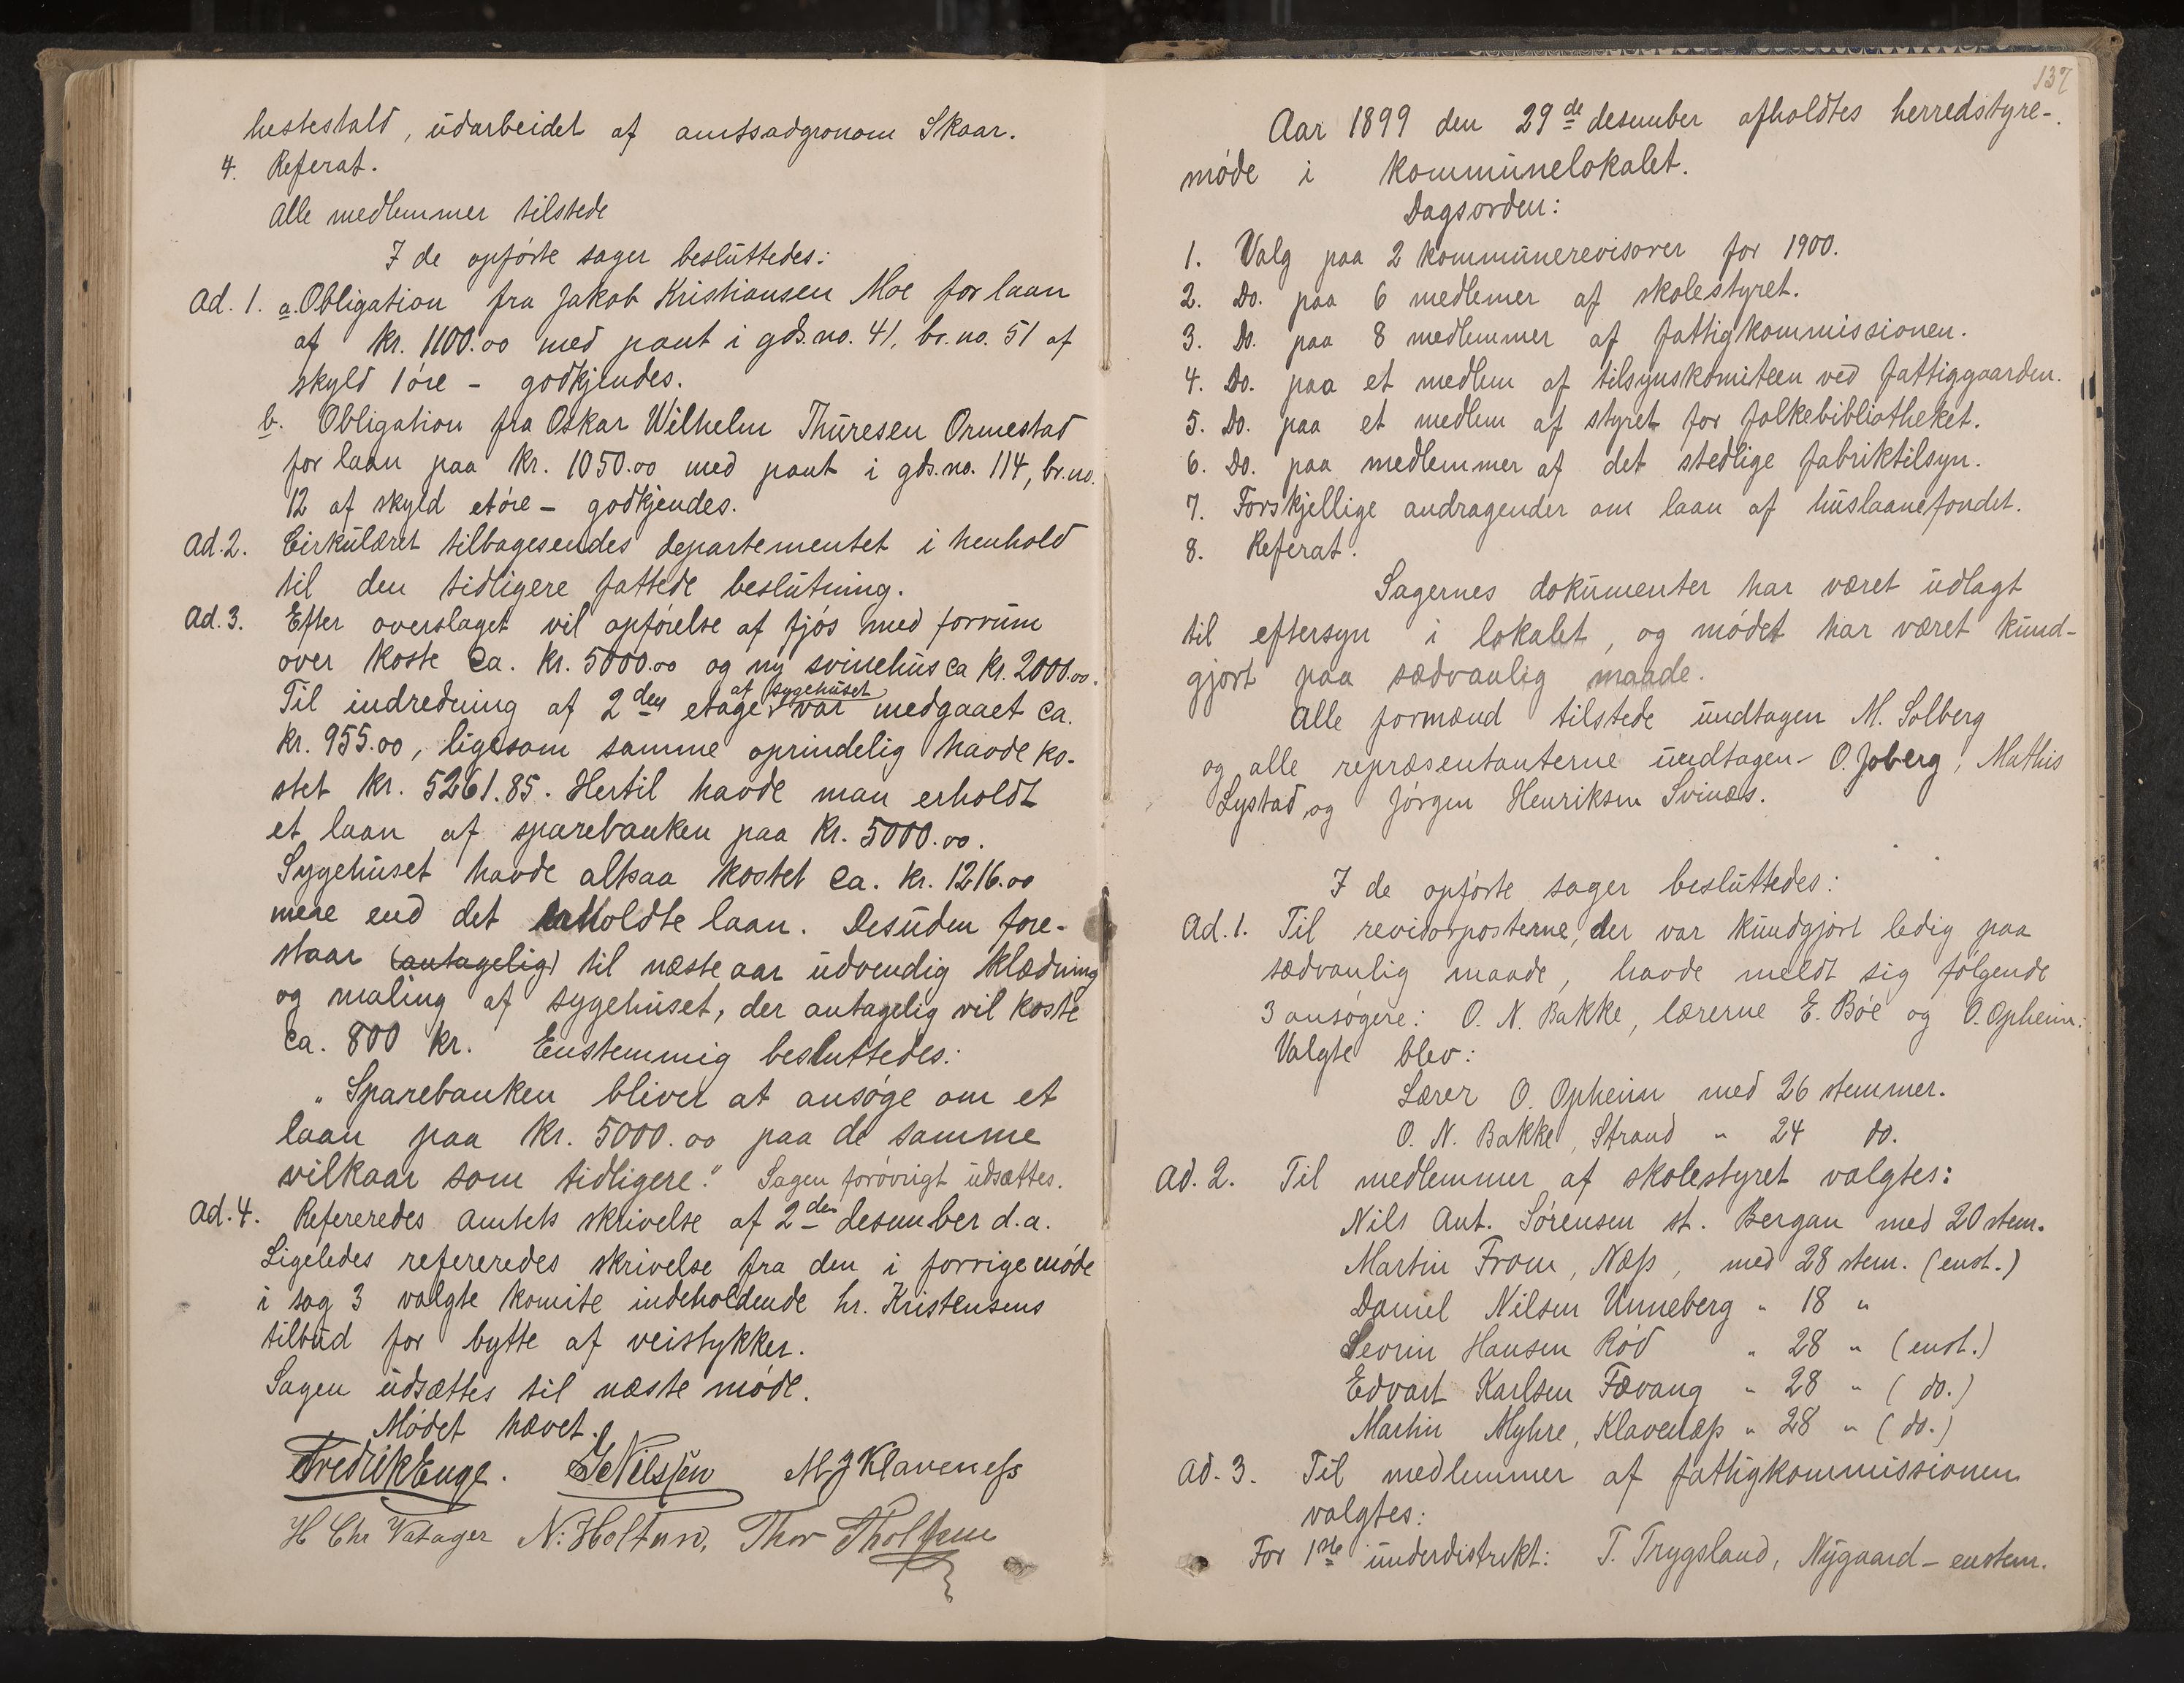 hestestald, udarbeidet af amtsadgronom Skaar.
4. Referat.
Alle medlemmer tilstede
I de opførte sager besluttedes:
Ad. 1. a. Obligation fra Jakob Kristiansen Moe for laan
af kr. 1100.00 med pant i gds.no. 41, br.no. 51 af
skyld 1 øre – godkjendes.
b. Obligation fra Oskar Wilhelm Thuresen Ormestad
for laan paa kr. 1050.00 med pant i gds.no. 114, br.no.
12 af skyld et øre – godkjendes.
Ad. 2. Cirkulæret tilbagesendes departementet i henhold
til den tidligere fattede beslutning.
Ad. 3. Efter overslaget vil opførelse af fjøs med forrum
over koste ca. kr. 5000.00 og ny svinehus ca kr. 2000.00.
Til indredning af 2den etage af sygehuset var medgaaet ca.
kr. 955.00, ligesom samme oprindelig havde ko-
stet kr. 5261.85. Hertil havde man erholdt
et laan af sparebanken paa kr. 5000.00.
Sygehuset havde altsaa kostet ca. kr. 1216.00
mere end det erholdte laan. Desuden fore-
staar (antagelig) til næste aar udvendig klædning
og maling af sygehuset, der antagelig vil koste
ca. 800 kr. Enstemmig besluttedes:
"Sparebanken bliver at ansøge om et
laan paa kr. 5000.00 paa de samme
vilkaar som tidligere." Sagen forøvrigt udsættes.
Ad. 4. Refereredes amtets skrivelse af 2den desember d.a.
Ligeledes refereredes skrivelse fra den i forrige møde
i sag 3 valgte komite indeholdende hr. Kristensens
tilbud for bytte af veistykker.
Sagen udsættes til næste møde.
Mødet hævet.
Fredrik Enge. Nilssen M J Klaveness
H Chr Vatager N. Holtan, Thor Tholfsen
137
Aar 1899 den 29de desember afholdtes herredstyre-
møde i kommunelokalet.
Dagsorden:
1. Valg paa 2 kommunerevisorer for 1900.
2. Do. paa 6 medlemer af skolestyret.
3. Do. paa 8 medlemmer af fattigkommissionen.
4. Do. paa et medlem af tilsynskomiteen ved fattiggaarden.
5. Do. paa et medlem af styret for folkebibliotheket.
6. Do. paa medlemmer af det stedlige fabriktilsyn.
7. Forskjellige andragender om laan af huslaanefondet.
8. Referat.
Sagernes dokumenter har været udlagt
til eftersyn i lokalet, og mødet har været kund-
gjort paa sædvanlig maade.
Alle formænd tilstede undtagen M. Solberg
og alle repræsentanterne undtagen O. Joberg, Mathis
Lystad og Jørgen Henriksen Svinæs.
I de opførte sager besluttedes:
Ad. 1. Til revisorposterne, der var kundgjort ledig paa
sædvanlig maade, havde meldt sig følgende
3 ansøgere: O. N. Bakke, lærerne E. Bøe og O. Opheim.
Valgte blev:
Lærer O. Opheim med 26 stemmer.
O. N. Bakke, Strand " 24 do.
Ad. 2. Til medlemmer af skolestyret valgtes:
Nils Ant. Sørensen st. Bergan med 20 stem.
Martin From, Næss, med 28 stem. (enst.)
Daniel Nilsen Unneberg " 18 "
Sevrin Hansen Rød " 28 " (enst.)
Edvart Karlsen Fævang " 28 " (do.)
Martin Myhre, Klavenæss " 28 " (do.)
Ad. 3. Til medlemmer af fattigkommissionen
valgtes:
For 1ste underdistrikt: T. Trygsland, Nygaard – enstem.